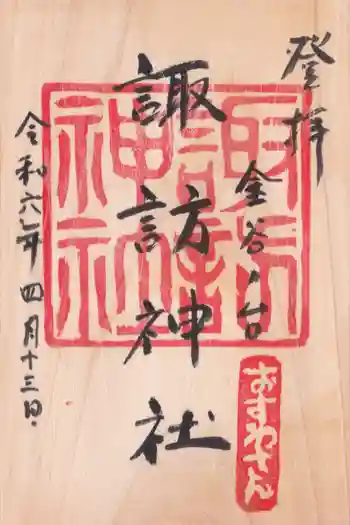 登拝
金谷ノ台
諏訪神社
諏訪神社
おすわさん
令和六年四月十三日